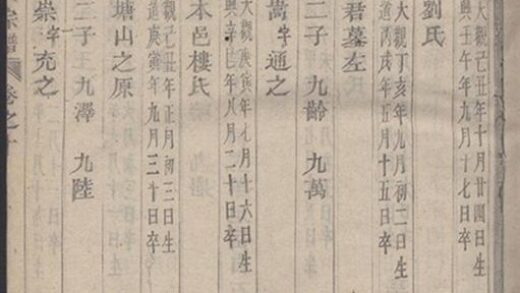 大觀己丑年十月廿四日生
興壬午年九月十七日卒
劉氏
大觀丁亥年九月初二日生
道丙戌年五月十五日卒
君墓左
二子 九齡 九萬
嵩字通之
大觀庚寅年七月十六日生
興辛巳年八月二十日卒
本邑樓氏
大觀己丑年正月初三日生
道庚寅年九月三十日卒
塘山之原
二子 九澤 九陸
崇字充之
宗譜 卷之